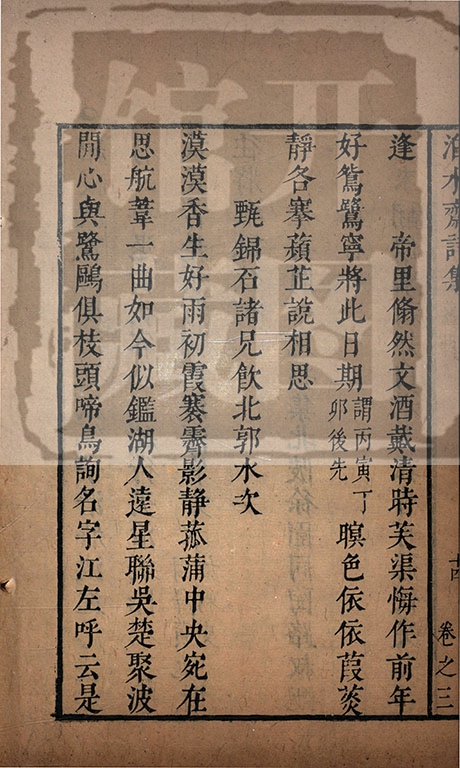 齋詩集
十四
卷之三
逢 帝里翛然文酒戴清時芙渠悔作前年
好鴛鷺寧將此日期謂丙寅丁卯後先暝色依依葭菼
靜各搴蘋芷說相思
甄錦石諸兄飲北郭水次
漠漠香生好雨初霞褰霽影靜菰蒲中央宛在
思航葦一曲如今似鑑湖人達星聯吳楚聚波
閒心與鷺鷗俱枝頭啼鳥詢名字江左呼云是